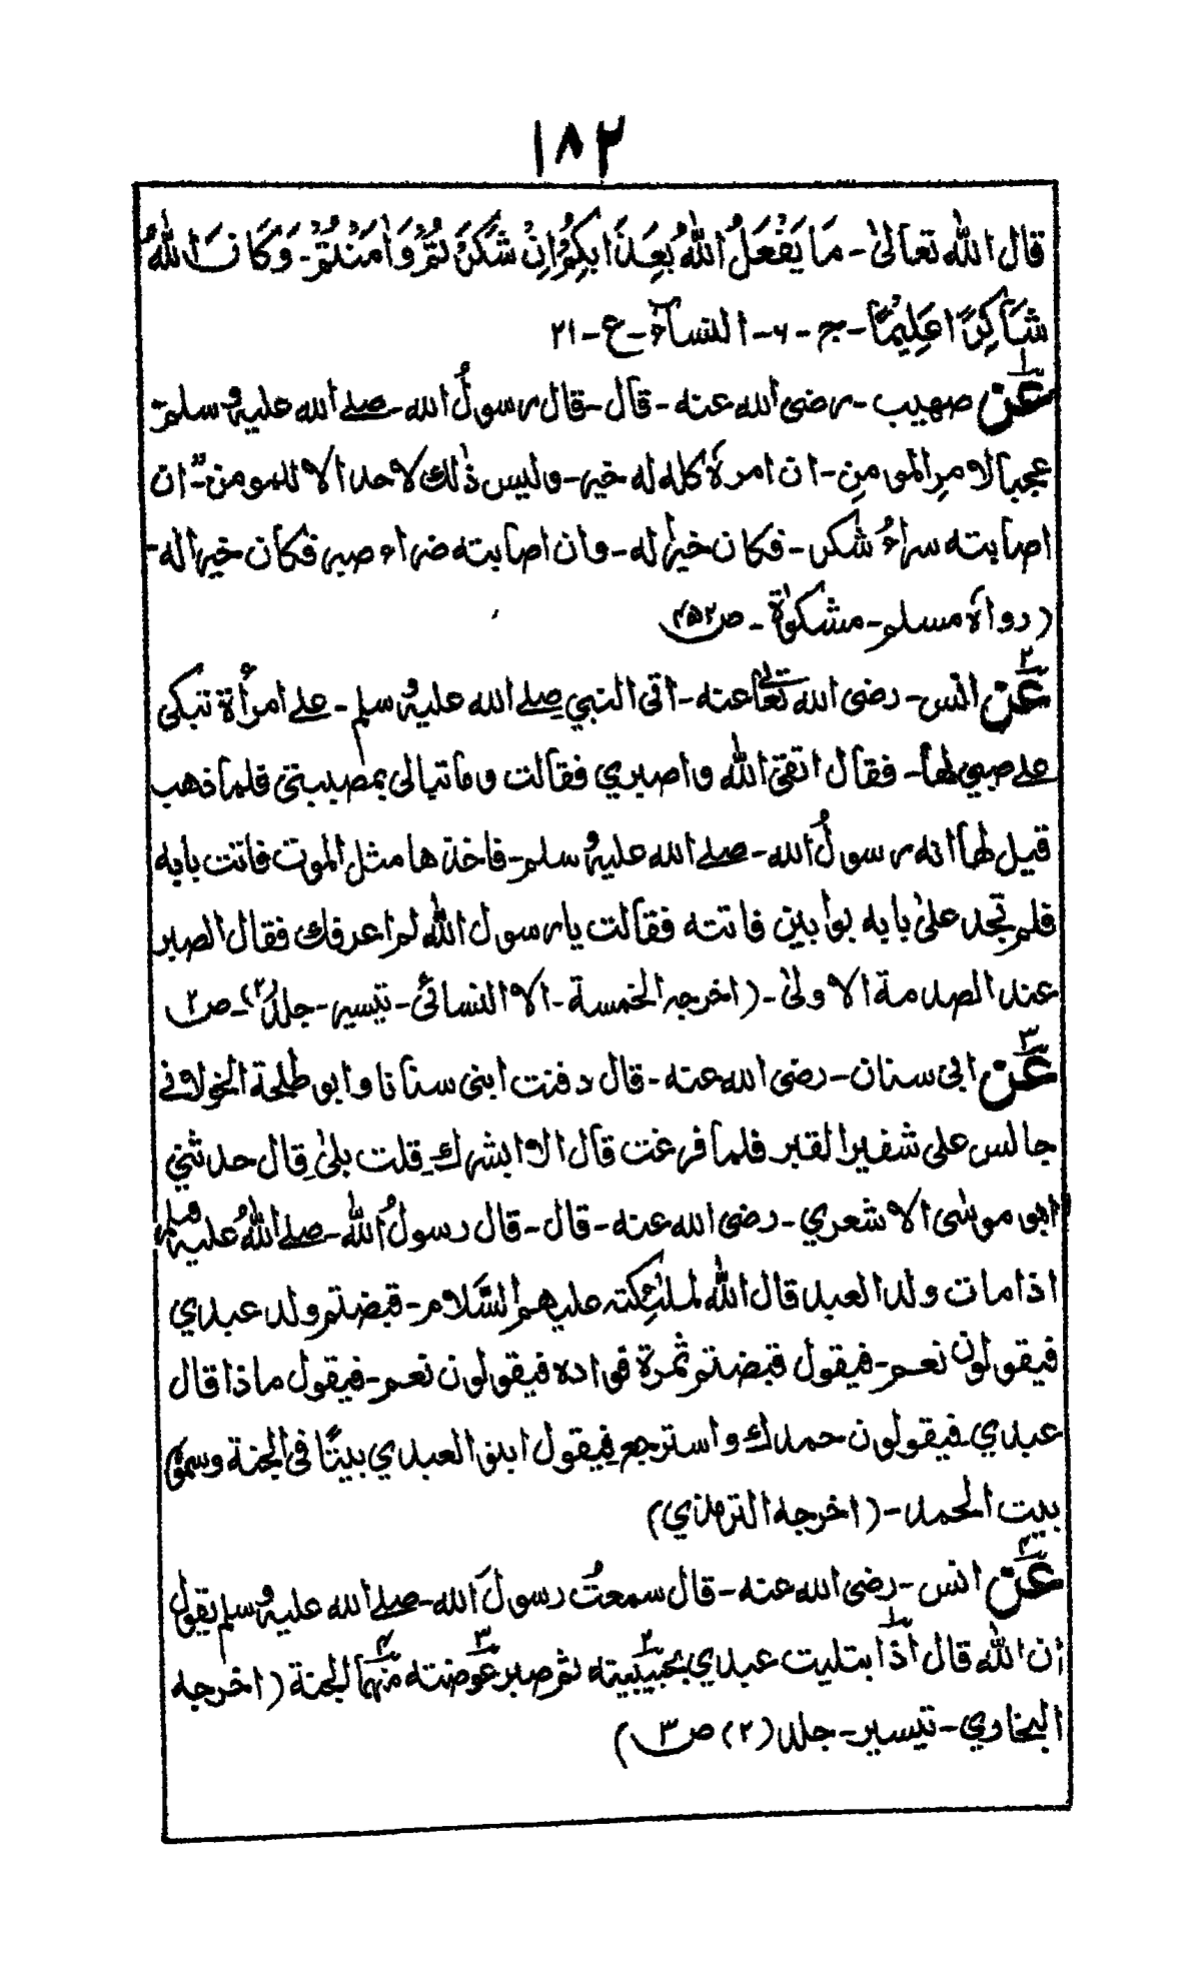 ١٨٢
قال الله تعالىٰ - مَا يَفْعَلُ اللّٰهُ بِعَذَابِكُمْ اِنْ شَكَرْتُمْ وَاٰمَنْتُمْ - وَكَانَ اللّٰهُ
شَاكِرًا عَلِيْمًا - ج - ٦ - النساء - ع - ٢١
١ عَن صهيب - رضى الله عنه - قال - قال رسولُ الله - صلے الله عليه وسلم -
عجبا لامرِ المومنِ - ان امرهٗ كله له خير - وليس ذٰلك لاحد الا للمومن - ان
اصابته سراءُ شكر - فكان خيرا له - وان اصابته ضراء صبر فكان خيرا له -
(رواه مسلم - مشكوٰة - ص ٤٥٢)
٢ عَن انس - رضى الله تعالىٰ عنه - اتى النبي صلے الله عليه وسلم - علے امرأة تبكى
علے صبي لها - فقال اتقى اللّٰه واصبري فقالت وما تبالى بمصيبتى فلما ذهب
قيل لها انه رسولُ الله - صلے الله عليه وسلم - فاخذها مثل الموت فاتت بابه
فلم تجد علىٰ بابه بوابين فاتته فقالت يا رسول اللّٰه لم اعرفك فقال الصبر
عند الصدمة الاولىٰ - (اخرجه الخمسة - الا النسائى - تيسير - جلد (٢) - ص ٢
٣ عَن ابى سنان - رضى الله عنه - قال دفنت ابنى سنانا وابو طلحة الخولانے
جالس على شفير القبر فلما فرغت قال الا ابشرك - قلت بلىٰ قال حدثني
ابو موسٰى الاشعري - رضى الله عنه - قال - قال رسولُ اللّٰه - صلے اللّٰهُ عليه وسلم
اذا مات ولد العبد قال اللّٰه لملٰئِكته عليهم السَّلام - قبضتم ولد عبدي
فيقولون نعم - فيقول قبضتم ثمرة فواده فيقولون نعم - فيقول ماذا قال
عبدي فيقولون حمدك واسترجع فيقول ابنو العبدي بيتًا فى الجنة وسموه
بيت الحمد - (اخرجه الترمذي)
٤ عَن انس - رضى الله عنه - قال سمعتُ رسولَ الله - صلے الله عليه وسلم يقول
ان اللّٰه قال ١ اذا ابتليت عبدي ٢ بحبيبيته ثم صبر ٣ عوضته ٤ منهما الجنة (اخرجه
البخاوي - تيسير - جلد (٢) ص ٣)